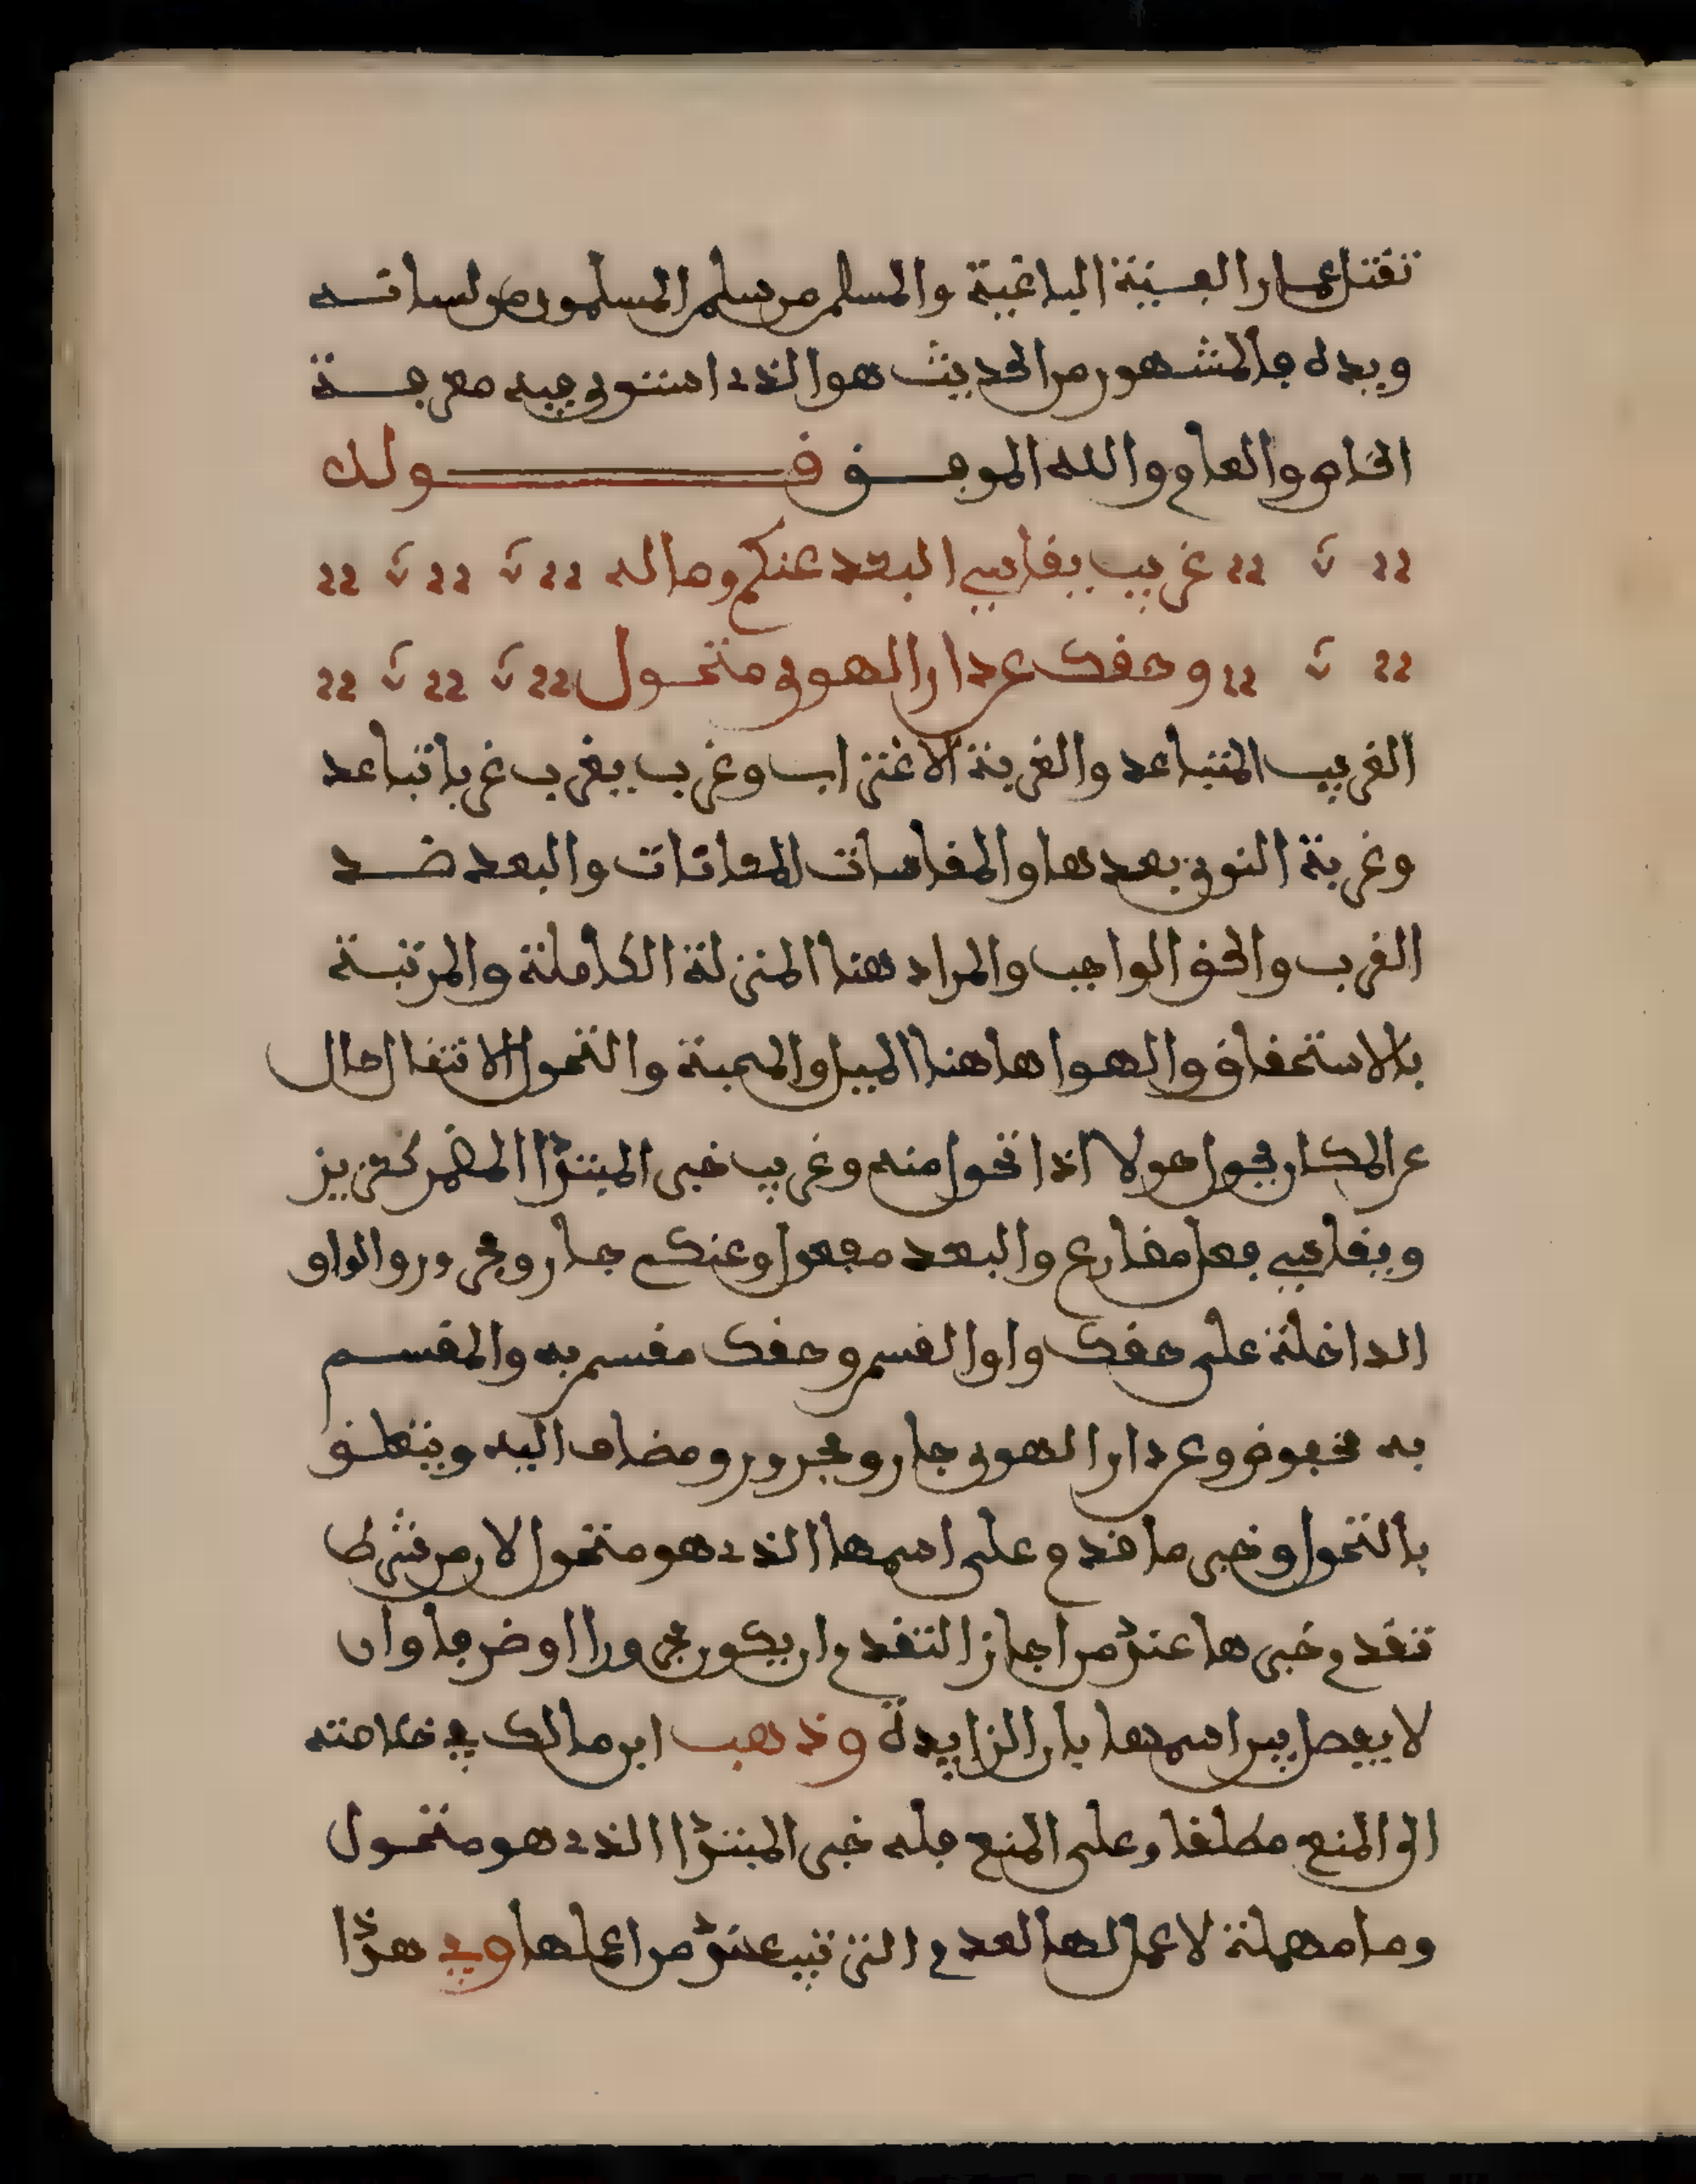 تقتل عمار الفيئة الباغية والمسلم من سلم المسلمون من لسانه
ويده فالمشهور من الحديث هو الذي استوى فيه معرفة
الخاص والعام والله الموفق قولك
غريب يقاسي البعد عنكم وماله
وحقك عن دار الهوى متحول
الغريب المتباعد والغربة الاغتراب وغرب يغرب غربا تباعد
وغربة النوى بعدها والمقاسات المعانات والبعد ضد
القرب والحق الواجب والمراد هنا المنزلة الكاملة والمرتبة
بالاستحقاق والهوا هاهنا الميل والمحبة والتحول الانتقال حال
عن المكان يحول حولا اذا تحول منه وغريب خبر المبتدا المضمر كعزيز
ويقاسي فعل مضارع والبعد مفعول وعنكم جار ومجرور والواو
الداخلة على حقك واو القسم وحقك مقسم به والمقسم
به مخفوض وعن دار الهوى جار ومجرور ومضاف اليه ويتعلق
بالتحول وخبر ما قدم على اسمها الذي هو متحول لان من شرط
تقدم خبرها عند من اجاز التقدم ان يكون مجرورا او ضرفا وان
لا يفصل بين اسمها بان الزايدة وذهب ابن مالك في خلاصته
الى المنع مطلقا وعلى المنع فله خبر المبتدا الذي هو متحول
وما مهملة لا عمل لها لعدم الترتيب عند من اعملها وفي هذا